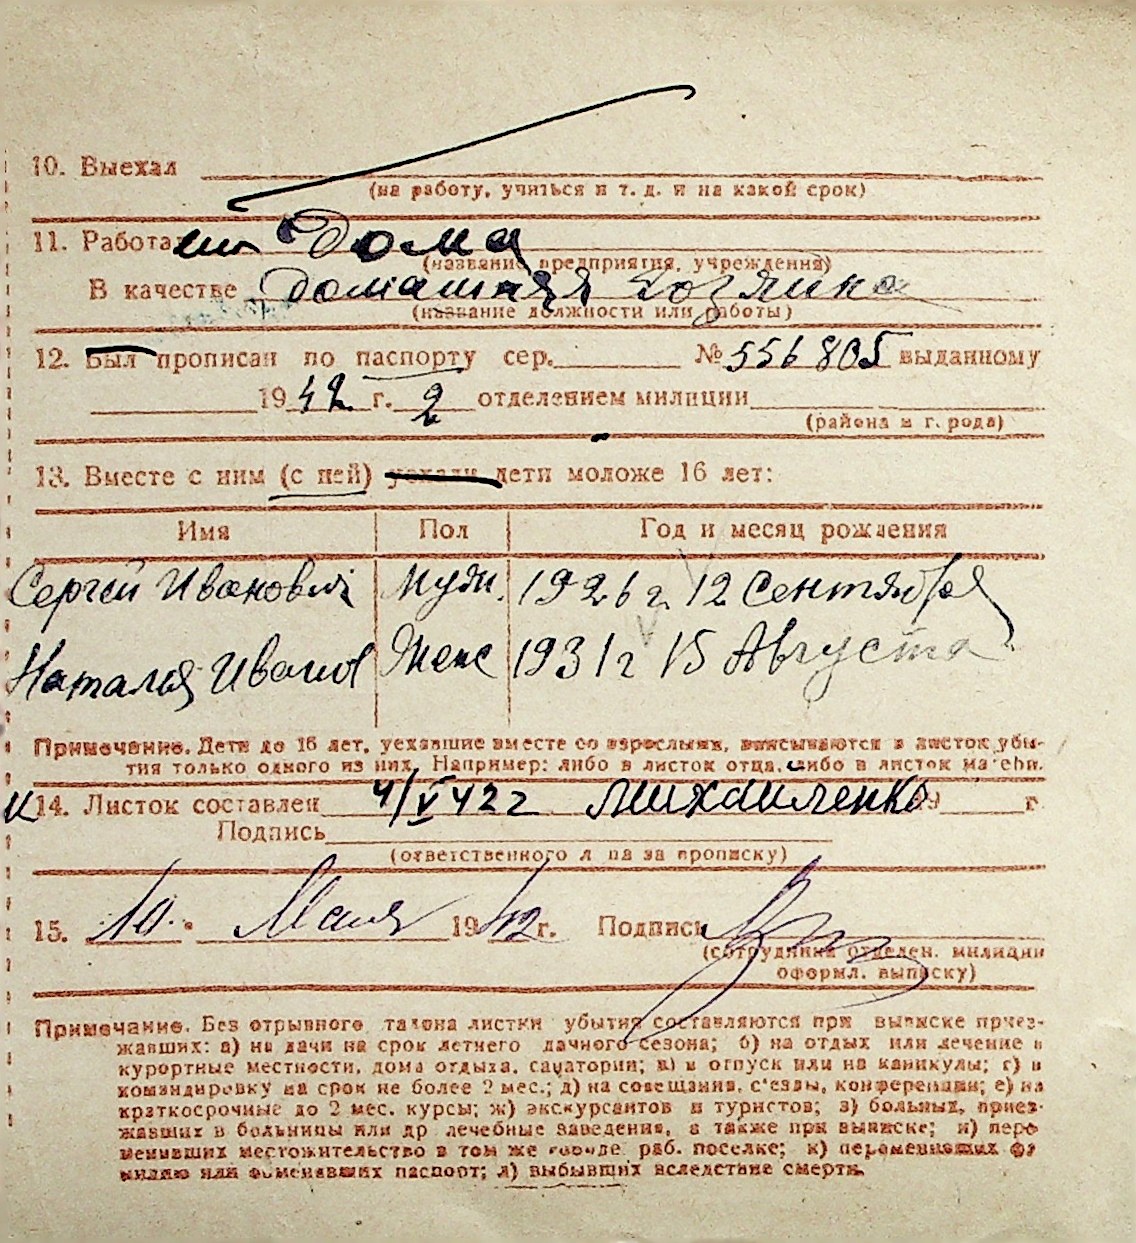 10. Выехал
(на работу, учиться и т. д. и на какой срок)
11. Работа Дома
(название предприятия, учреждения)
В качестве Домашняя Хозяика
(название должности или работы)
12. Был прописан по паспорту сер. № 556805 выданному
1942 г. 2 отделением милиции
(района и города)
13. Вместе с ним (с ней) уехали дети моложе 16 лет:
Имя Пол Год и месяц рождения
Сергей Иванович Муж. 1926 г. 12 Сентября
Наталья Иванов Женс 1931 г 15 Августа
Примечание. Дети до 16 лет, уехавшие вместе со взрослыми, вписываются в листок убы-
тия только одного из них. Например: либо в листок отца, либо в листок матери.
14. Листок составлен 4/V 42 г Михаиленко 19 г.
Подпись
(ответственного л ца за прописку)
15. 10 Мая 1942 г. Подпись
(сотрудника отделен. милиции
оформл. выписку)
Примечание. Без отрывного талона листки убытия составляются при выписке приез-
жавших: а) на дачи на срок летнего дачного сезона; б) на отдых или лечение в
курортные местности, дома отдыха, санатории; в) в отпуск или на каникулы; г) в
командировку на срок не более 2 мес.; д) на совещания, с'езды, конференции; е) на
краткосрочные до 2 мес. курсы; ж) экскурсантов и туристов; з) больных, приез-
жавших в больницы или др лечебные заведения, а также при выписке; и) пере
менивших местожительство в том же городе, раб. поселке; к) переменивших фа
милию или обменявших паспорт; л) выбывших вследствие смерти.